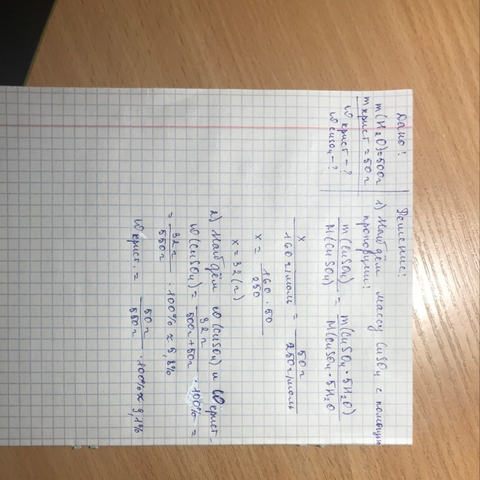 Дано:
m(H₂O)=500г
mкрист=50г
ω крист-?
ω CuSO₄-?
Решение:
1) Найдём массу CuSO₄ с помощью
пропорции:
m(CuSO₄)/M(CuSO₄) = m(CuSO₄·5H₂O)/M(CuSO₄·5H₂O
x/160г/моль = 50г/250г/моль
x = 160·50/250
x=32(г)
2) Найдём ω(CuSO₄) и ωкрист.
ω(CuSO₄)= 32г/500г+50г ·100%=
= 32г/550г ·100%≈5,8%
ωкрист.= 50г/550г ·100%≈9,1%